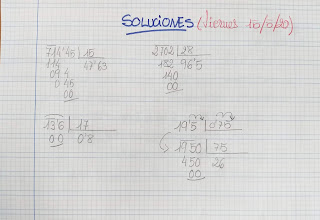 SOLUCIONES (Viernes 15/5/20)
714'45 | 15
114 47'63
09 4
0 45
00
2702 | 28
182 96'5
140
00
13'6 | 17
0 0 0'8
19'5 | 0'75
1950 | 75
450 26
00